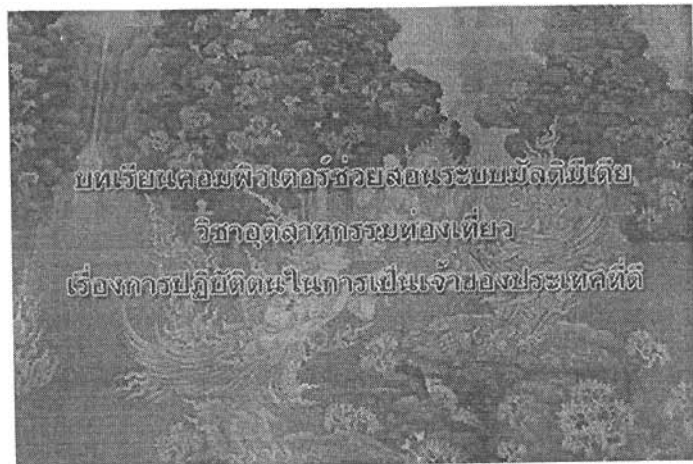 บทเรียนคอมพิวเตอร์ช่วยสอนระบบมัลติมีเดีย
วิชาอุตสาหกรรมท่องเที่ยว
เรื่องการปฏิบัติตนในการเป็นเจ้าของประเทศที่ดี